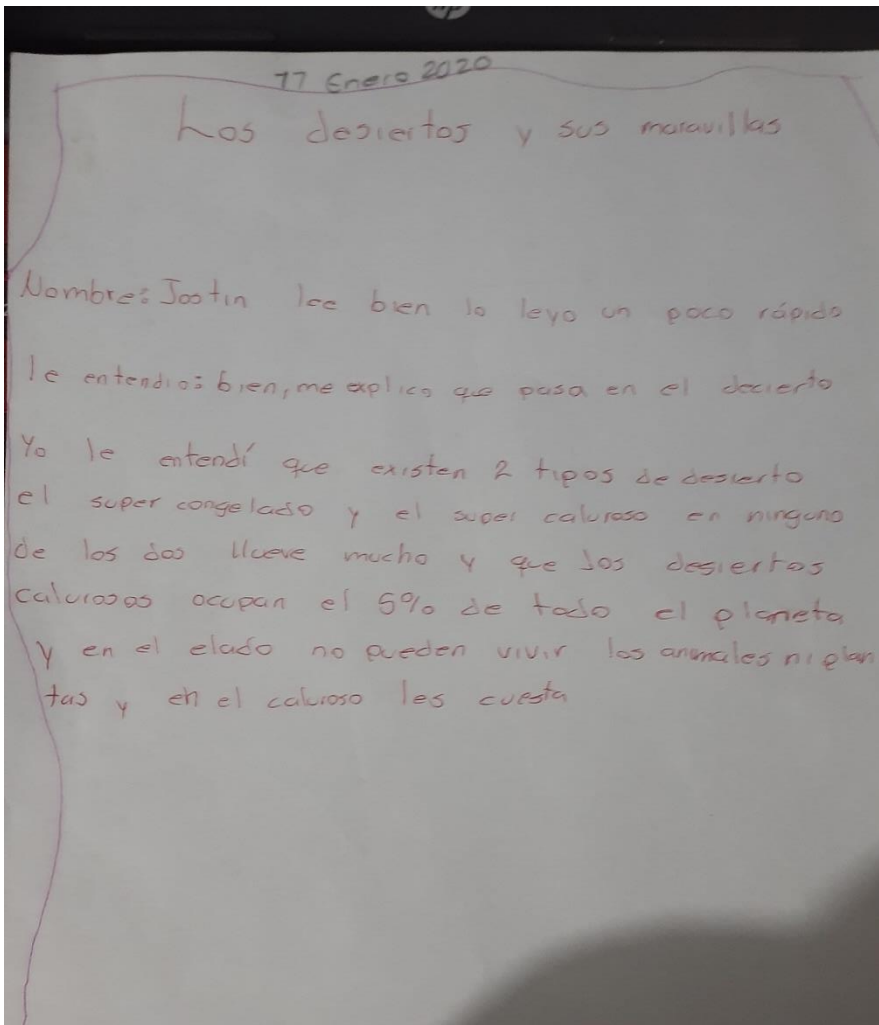 17 Enero 2020
Los desiertos y sus maravillas
Nombre: Jostin lee bien lo leyo un poco rápido
le entendio: bien, me explico que pasa en el decierto
Yo le entendí que existen 2 tipos de desierto
el super congelado y el super caluroso en ninguno
de los dos llueve mucho y que los desiertos
calurosos ocupan el 5% de todo el planeta
y en el elado no pueden vivir los animales ni plan
tas y en el caluroso les cuesta